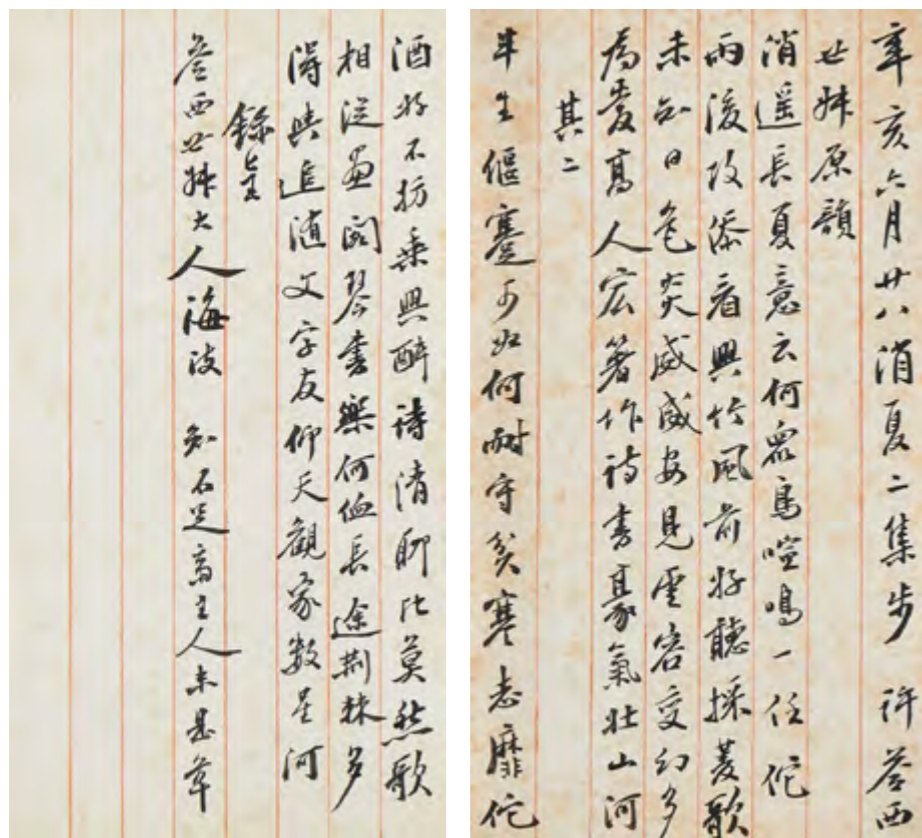 辛亥六月廿八消夏二集步 許苓西
世叔原韻
消遥長夏意云何衆鳥喧鳴一任佗
雨後改添看興竹風前好聽採菱歌
未知日色炎威盛安見雲容变幻多
為愛高人宏箸作詩書豪氣壯山河
其二
半生偃蹇可如何耐守貧寒志靡佗
酒好不妨乘興醉詩清聊比莫愁歌
相從画閣琴書樂何恤長途荆棘多
得與追随文字友仰天觀象数星河
錄呈
苓西世叔大人 誨政 知不足齋主人未是草